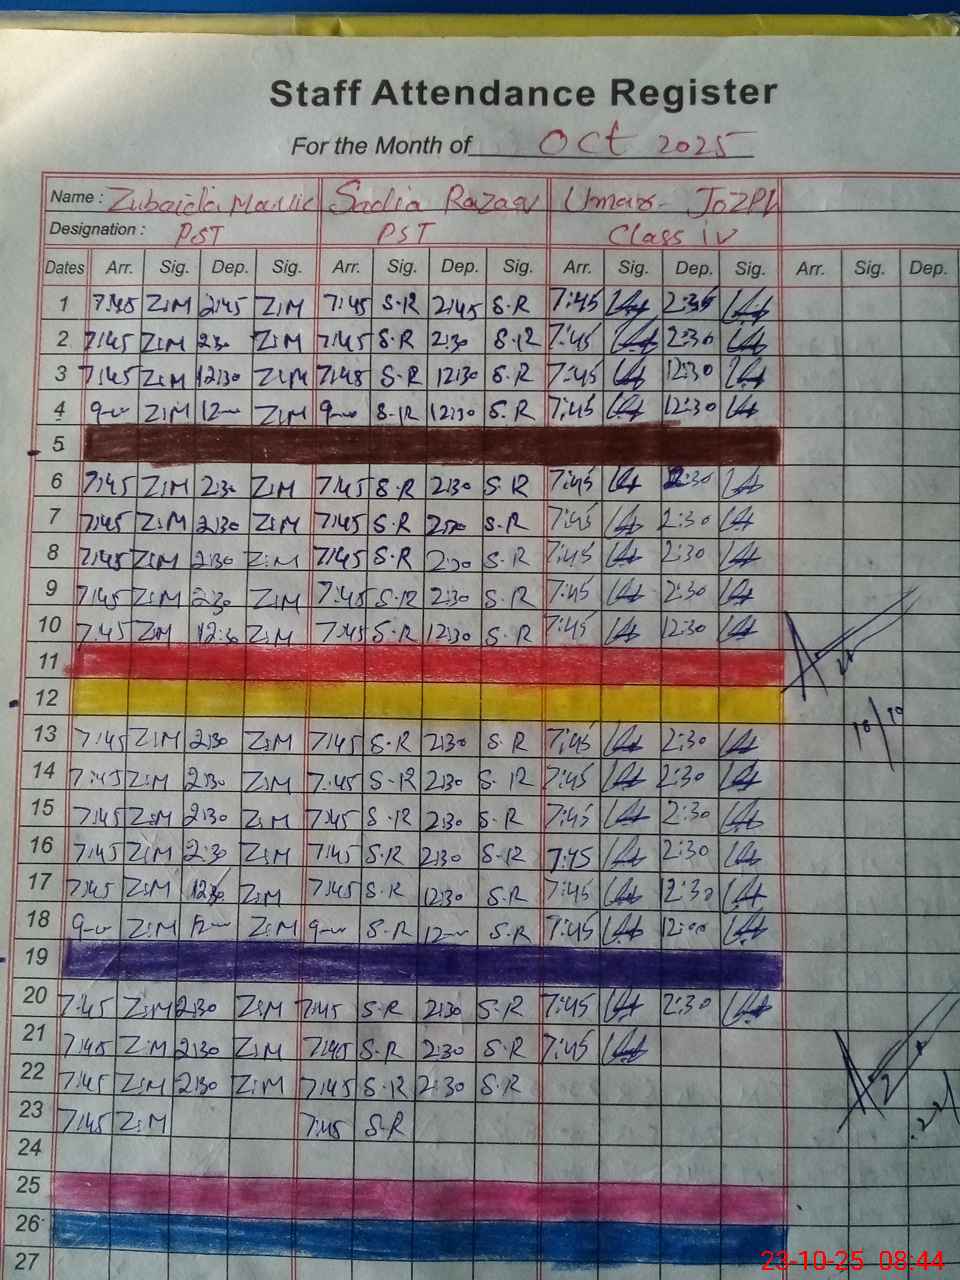 Staff Attendance Register
For the Month of Oct 2025
Name : Zubaida Malik Sadia Razaq Umar
Designation : PST PST Class iv
Dates Arr. Sig. Dep. Sig. Arr. Sig. Dep. Sig. Arr. Sig. Dep. Sig. Arr. Sig. Dep.
1 7:45 Z.M 2:45 Z.M 7:45 S.R 2:45 S.R 7:45
2 7:45 Z.M 2:30 Z.M 7:45 S.R 2:30 S.R 7:45 2:30
3 7:45 Z.M 12:30 Z.M 7:45 S.R 12:30 S.R 7:45 12:30
4 9-00 Z.M 12-00 Z.M 9-00 S.R 12:30 S.R 7:45 12:30
5
6 7:45 Z.M 2:30 Z.M 7:45 S.R 2:30 S.R 7:45 2:30
7 7:45 Z.M 2:30 Z.M 7:45 S.R 2:30 S.R 7:45 2:30
8 7:45 Z.M 2:30 Z.M 7:45 S.R 2:30 S.R 7:45 2:30
9 7:45 Z.M 2:30 Z.M 7:45 S.R 2:30 S.R 7:45 2:30
10 7:45 Z.M 12:30 Z.M 7:45 S.R 12:30 S.R 7:45 12:30
11
12
10/10
13 7:45 Z.M 2:30 Z.M 7:45 S.R 2:30 S.R 7:45 2:30
14 7:45 Z.M 2:30 Z.M 7:45 S.R 2:30 S.R 7:45 2:30
15 7:45 Z.M 2:30 Z.M 7:45 S.R 2:30 S.R 7:45 2:30
16 7:45 Z.M 2:30 Z.M 7:45 S.R 2:30 S.R 7:45 2:30
17 7:45 Z.M 12:30 Z.M 7:45 S.R 12:30 S.R 7:45 12:30
18 9-00 Z.M 12-00 Z.M 9-00 S.R 12-00 S.R 7:45 12:00
19
20 7:45 Z.M 2:30 Z.M 7:45 S.R 2:30 S.R 7:45 2:30
21 7:45 Z.M 2:30 Z.M 7:45 S.R 2:30 S.R 7:45
22 7:45 Z.M 2:30 Z.M 7:45 S.R 2:30 S.R
23 7:45 Z.M 7:45 S.R
24
25
26
27
23-10-25 08:44